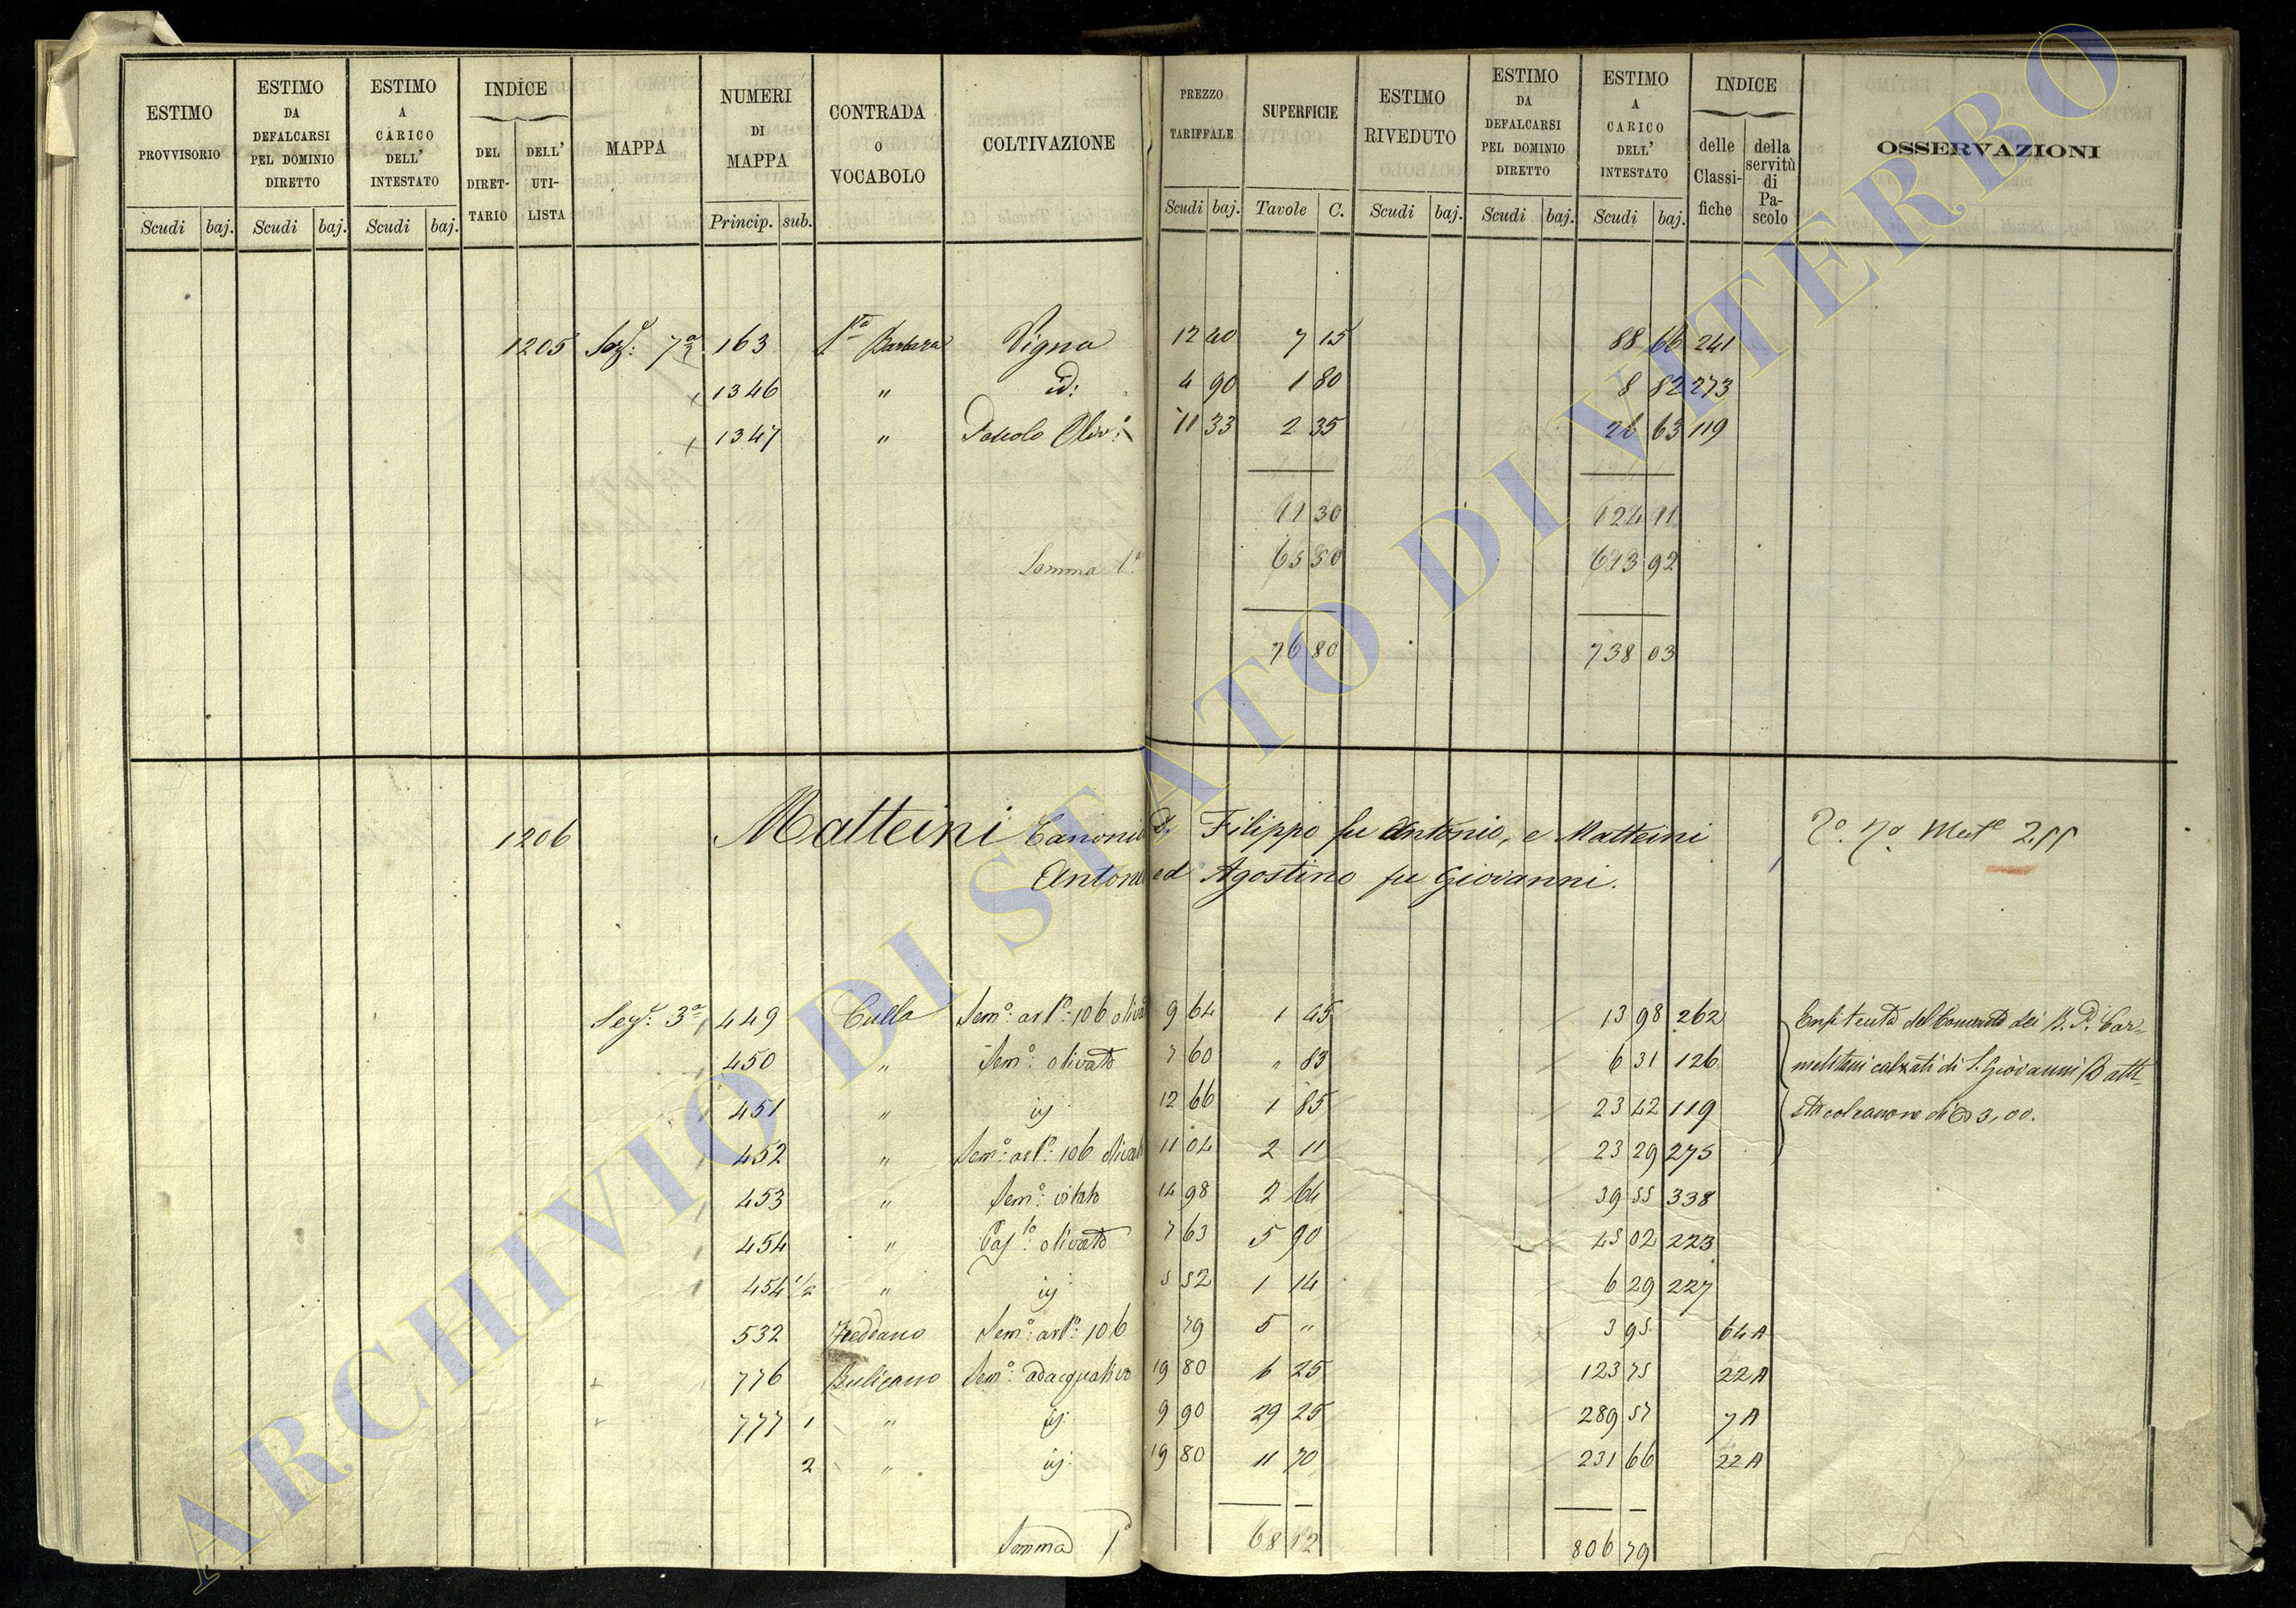 ESTIMO PROVVISORIO | ESTIMO DA DEFALCARSI PEL DOMINIO DIRETTO | ESTIMO A CARICO DELL' INTESTATO | INDICE DEL DIRETTARIO | DELL' UTILISTA | MAPPA | NUMERI DI MAPPA | CONTRADA O VOCABOLO | COLTIVAZIONE | PREZZO TARIFFALE | SUPERFICIE | ESTIMO RIVEDUTO | ESTIMO DA DEFALCARSI PEL DOMINIO DIRETTO | ESTIMO A CARICO DELL' INTESTATO | INDICE delle Classifiche | della servitù di Pascolo | OSSERVAZIONI
Scudi baj. | Scudi baj. | Scudi baj. | Princip. sub. | Scudi baj. | Tavole C. | Scudi baj. | Scudi baj. | Scudi baj.
1205 Sez: 7a 163 Sta Barbara Vigna 12 40 7 15 88 66 241
1346 " id: 4 90 1 80 8 82 273
1347 " Pascolo Oliv: 11 33 2 35 26 63 119
11 30 124 11
Somma 1a 65 50 613 92
76 80 738 03
1206 Matteini Canonico D. Filippo fu Antonio, e Matteini
Antonio ed Agostino fu Giovanni.
Sez: 3a 449 Culla Semo: 106 olivato 9 64 1 45 13 98 262 Enfiteuta del Convento dei R. P. Car-
450 " Semo: olivato 7 60 " 83 6 31 126 melitani calzati di S. Giovanni Batti-
451 " id 12 66 1 85 23 42 119 sta col canone di 3,00.
452 " Semo: 106 olivato 11 04 2 11 23 29 275
453 " Semo: vitato 14 98 2 64 39 55 338
454 " Paslo: olivato 7 63 5 90 45 02 223
454 1/2 " id 5 52 1 14 6 29 227
532 Freddano Semo: 106 79 5 " 3 95 64A
776 Bulicano Semo: adacquativo 19 80 6 25 123 75 22A
777 1 " id 9 90 29 25 289 57 7A
2 " id 19 80 11 70 231 66 22A
Somma 1a 68 12 806 79
ARCHIVIO DI STATO DI VITERBO